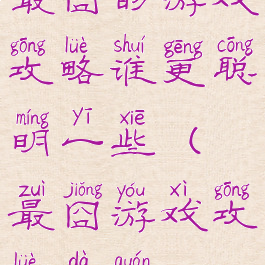 最囧的游戏
gōng lüè shuí gēng cōng
攻略谁更聪
míng yī xiē
明一些（
zuì jiǒng yóu xì gōng
最囧游戏攻
lüè dà quán